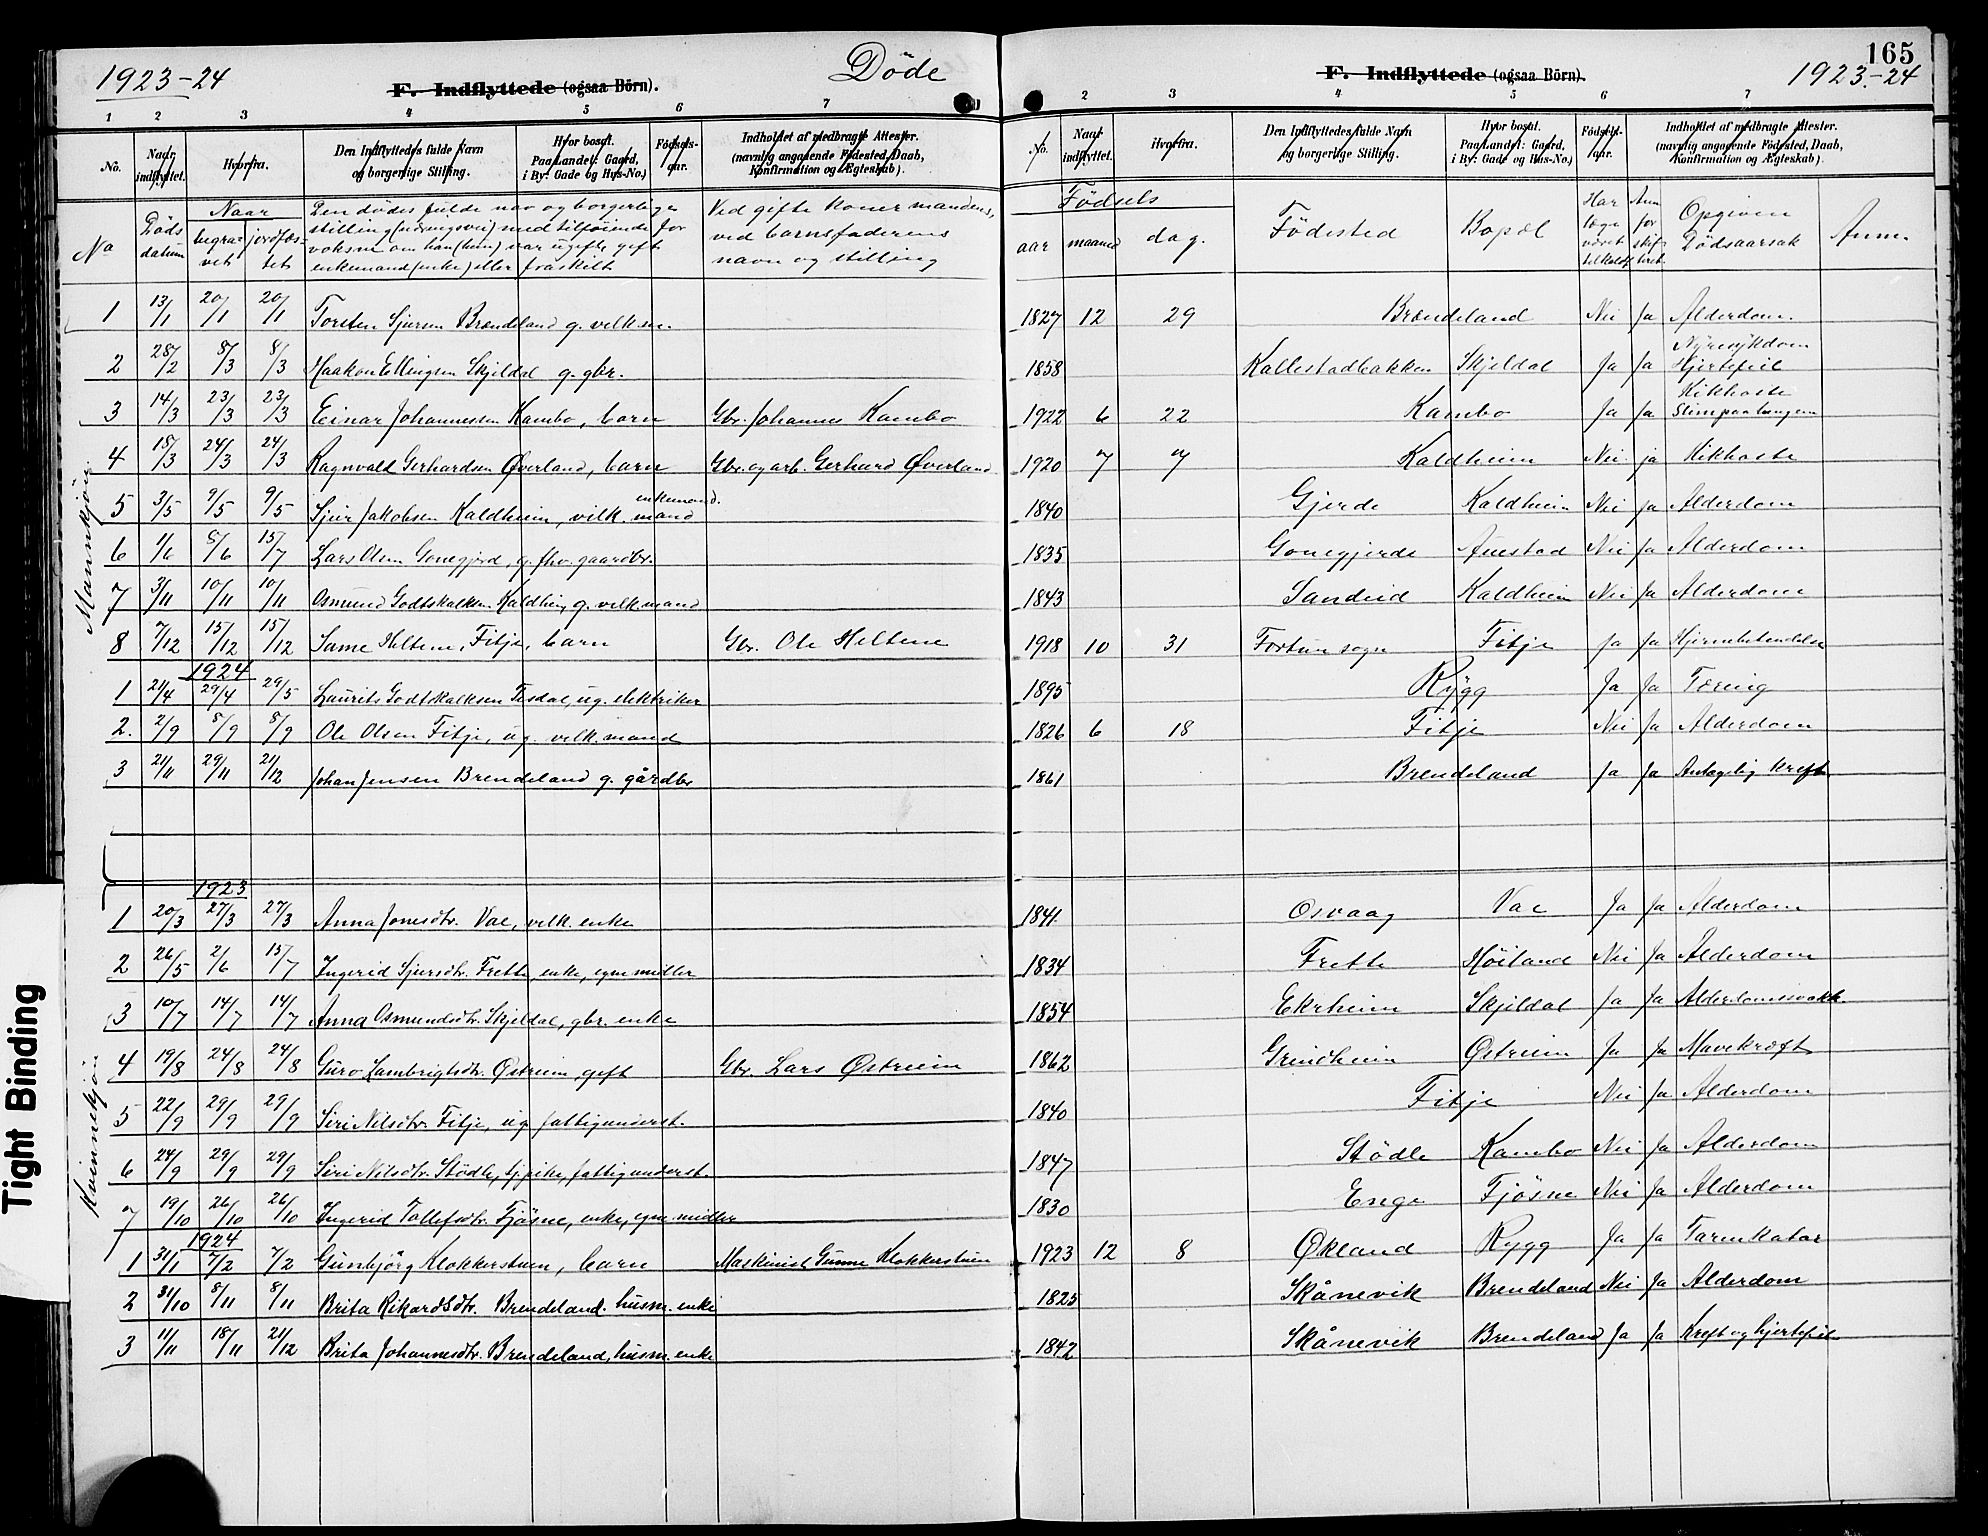 1923-24
F. Indflyttede (ogsaa Börn).
Döde
1 2 3 4 5 6 7
No.
Naar indflyttet.
Hvorfra.
Den Indflyttedes fulde Navn og borgerlige Stilling.
Hvor bosat. Paa Landet: Gaard, i By: Gade og Hus-No.)
Fødselsaar.
Indholdet af medbragte Attester. (navnlig angaaende Fødested, Daab, Konfirmation og Ægteskab).
No
Döds datum
Naar
begravet
jordfæstet
Den dödes fulde navn og borgerlige
stilling (næringsvei) med tilföiende for
voksne om han (hun) var ugift, gift
enkemand (enke) eller fraskilt
Ved gifte koner mandens,
ved barn faderens
navn og stilling
Mannkjön
1 13/1 20/1 20/1 Torsten Sjursen Brændeland g. velk.m.
2 28/2 8/3 8/3 Haakon Ellingsen Skjeldal g. gbr.
3 14/3 23/3 23/3 Einar Johannessen Kambo, barn Gbr. Johannes Kambo
4 18/3 24/3 24/3 Ragnvald Gerhardsen Øverland, barn Gbr. og arb. Gerhard Øverland
5 3/5 9/5 9/5 Sjur Jakobsen Kaldheim, vilk. mand enkemand.
6 1/6 8/6 15/7 Lars Olsen Gonegjerd, g. fhv. gaardbr.
7 3/11 10/11 10/11 Osmund Godtskalksen Kaldheim g. velk mand
8 7/12 15/12 15/12 Same Heltene, Fitje, barn Gbr. Ole Heltene
1924
1 21/4 29/4 29/5 Laurits Godtskalksen Tesdal, ug. elektriker
2. 2/9 8/9 8/9 Ole Olsen Fitje, ug. velk. mand
3 21/11 29/11 21/12 Johan Jensen Brendeland g. gårdbr
Kvinnekjön
1923
1 20/3 27/3 27/3 Anna Jonesdtr. Vae, velk. enke
2 26/5 2/6 15/7 Ingerid Sjursdtr. Frette, enke, egne midler
3 10/7 14/7 14/7 Anna Osmundsdtr. Skjeldal, gbr. enke
4 19/8 24/8 24/8 Guro Lambrigtsdtr. Østreim gift Gbr. Lars Østreim
5 22/9 29/9 29/9 Siri Nilsdtr. Fitje, ug. fattigunderst.
6 24/9 29/9 29/9 Siri Nilsdtr. Stödle, tj.pike, fattigunderst.
7 19/10 26/10 26/10 Ingerid Tollefsdtr. Fjösne, enke, egne midler
1924
1 31/1 7/2 7/2 Gunbjörg Klokkerstuen, barn Maskinist Gunne Klokkerstuen
2 31/10 8/11 8/11 Brita Rikardsdtr. Brendeland. husm. enke
3 11/11 18/11 21/12 Brita Johannesdtr. Brendeland, husm. enke
Tight Binding
165
F. Indflyttede (ogsaa Börn).
1923.-24
2 3 4 5 6 7
No.
Naar indflyttet.
Hvorfra.
Den Indflyttedes fulde Navn og borgerlige Stilling.
Hvor bosat. Paa Landet: Gaard, i By: Gade og Hus-No.)
Fødselsaar.
Indholdet af medbragte Attester. (navnlig angaaende Fødested, Daab, Konfirmation og Ægteskab).
Födsels
aar maaned dag.
Födested
Bopæl
Har læge været tilkaldt
Anm for skifteret.
Opgiven Dödsaarsak
Anm.
1827 12 29 Brændeland Nei Ja Alderdom.
1858 Kallestadbakken Skjeldal Ja Ja Nyresykdom Hjertefeil
1922 6 22 Kambo Ja Ja Kikhoste Slim paa lungen
1920 7 7 Kaldheim Nei ja Kikhoste
1840 Gjerde Kaldheim Nei ja Alderdom
1835 Gonegjerde Auestad Nei Ja Alderdom
1843 Sandeid Kaldheim Nei Ja Alderdom
1918 10 31 Fortun sogn Fitje Ja Ja Hjernebetendelse
1895 Rygg Ja Ja Tæring
1826 6 18 Fitje Nei Ja Alderdom
1861 Brendeland Ja Ja Antagelig kreft
1841 Osvaag Vae Ja Ja Alderdom
1834 Frette Höiland Nei Ja Alderdom
1854 Ekrheim Skjeldal Ja Ja Alderdomssvakh.
1862 Grindheim Østreim Ja Ja Mavekræft
1840 Fitje Nei Ja Alderdom
1847 Stödle Kambo Nei Ja Alderdom
1830 Enge Fjösne Nei Ja Alderdom
1923 12 8 Økland Rygg Ja Ja Tarmkatar
1825 Skånevik Brendeland Nei Ja Alderdom
1842 Skånevik Brendeland Ja Ja Kreft og hjertefeil